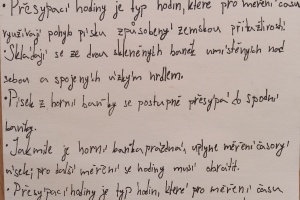 • Přesýpací hodiny je typ hodin, které pro měření času
využívají pohyb písku způsobený zemskou přitažlivostí.
Skládají se ze dvou skleněných baněk umístěných nad
sebou a spojených úzkým hrdlem.
• Písek z horní baňky se postupně přesýpá do spodní
baňky.
• Jakmile je horní baňka prázdná, uplyne měření časový
a pro další měření se hodiny musí obrátit.
• Přesýpací hodiny je typ hodin, které pro měření času